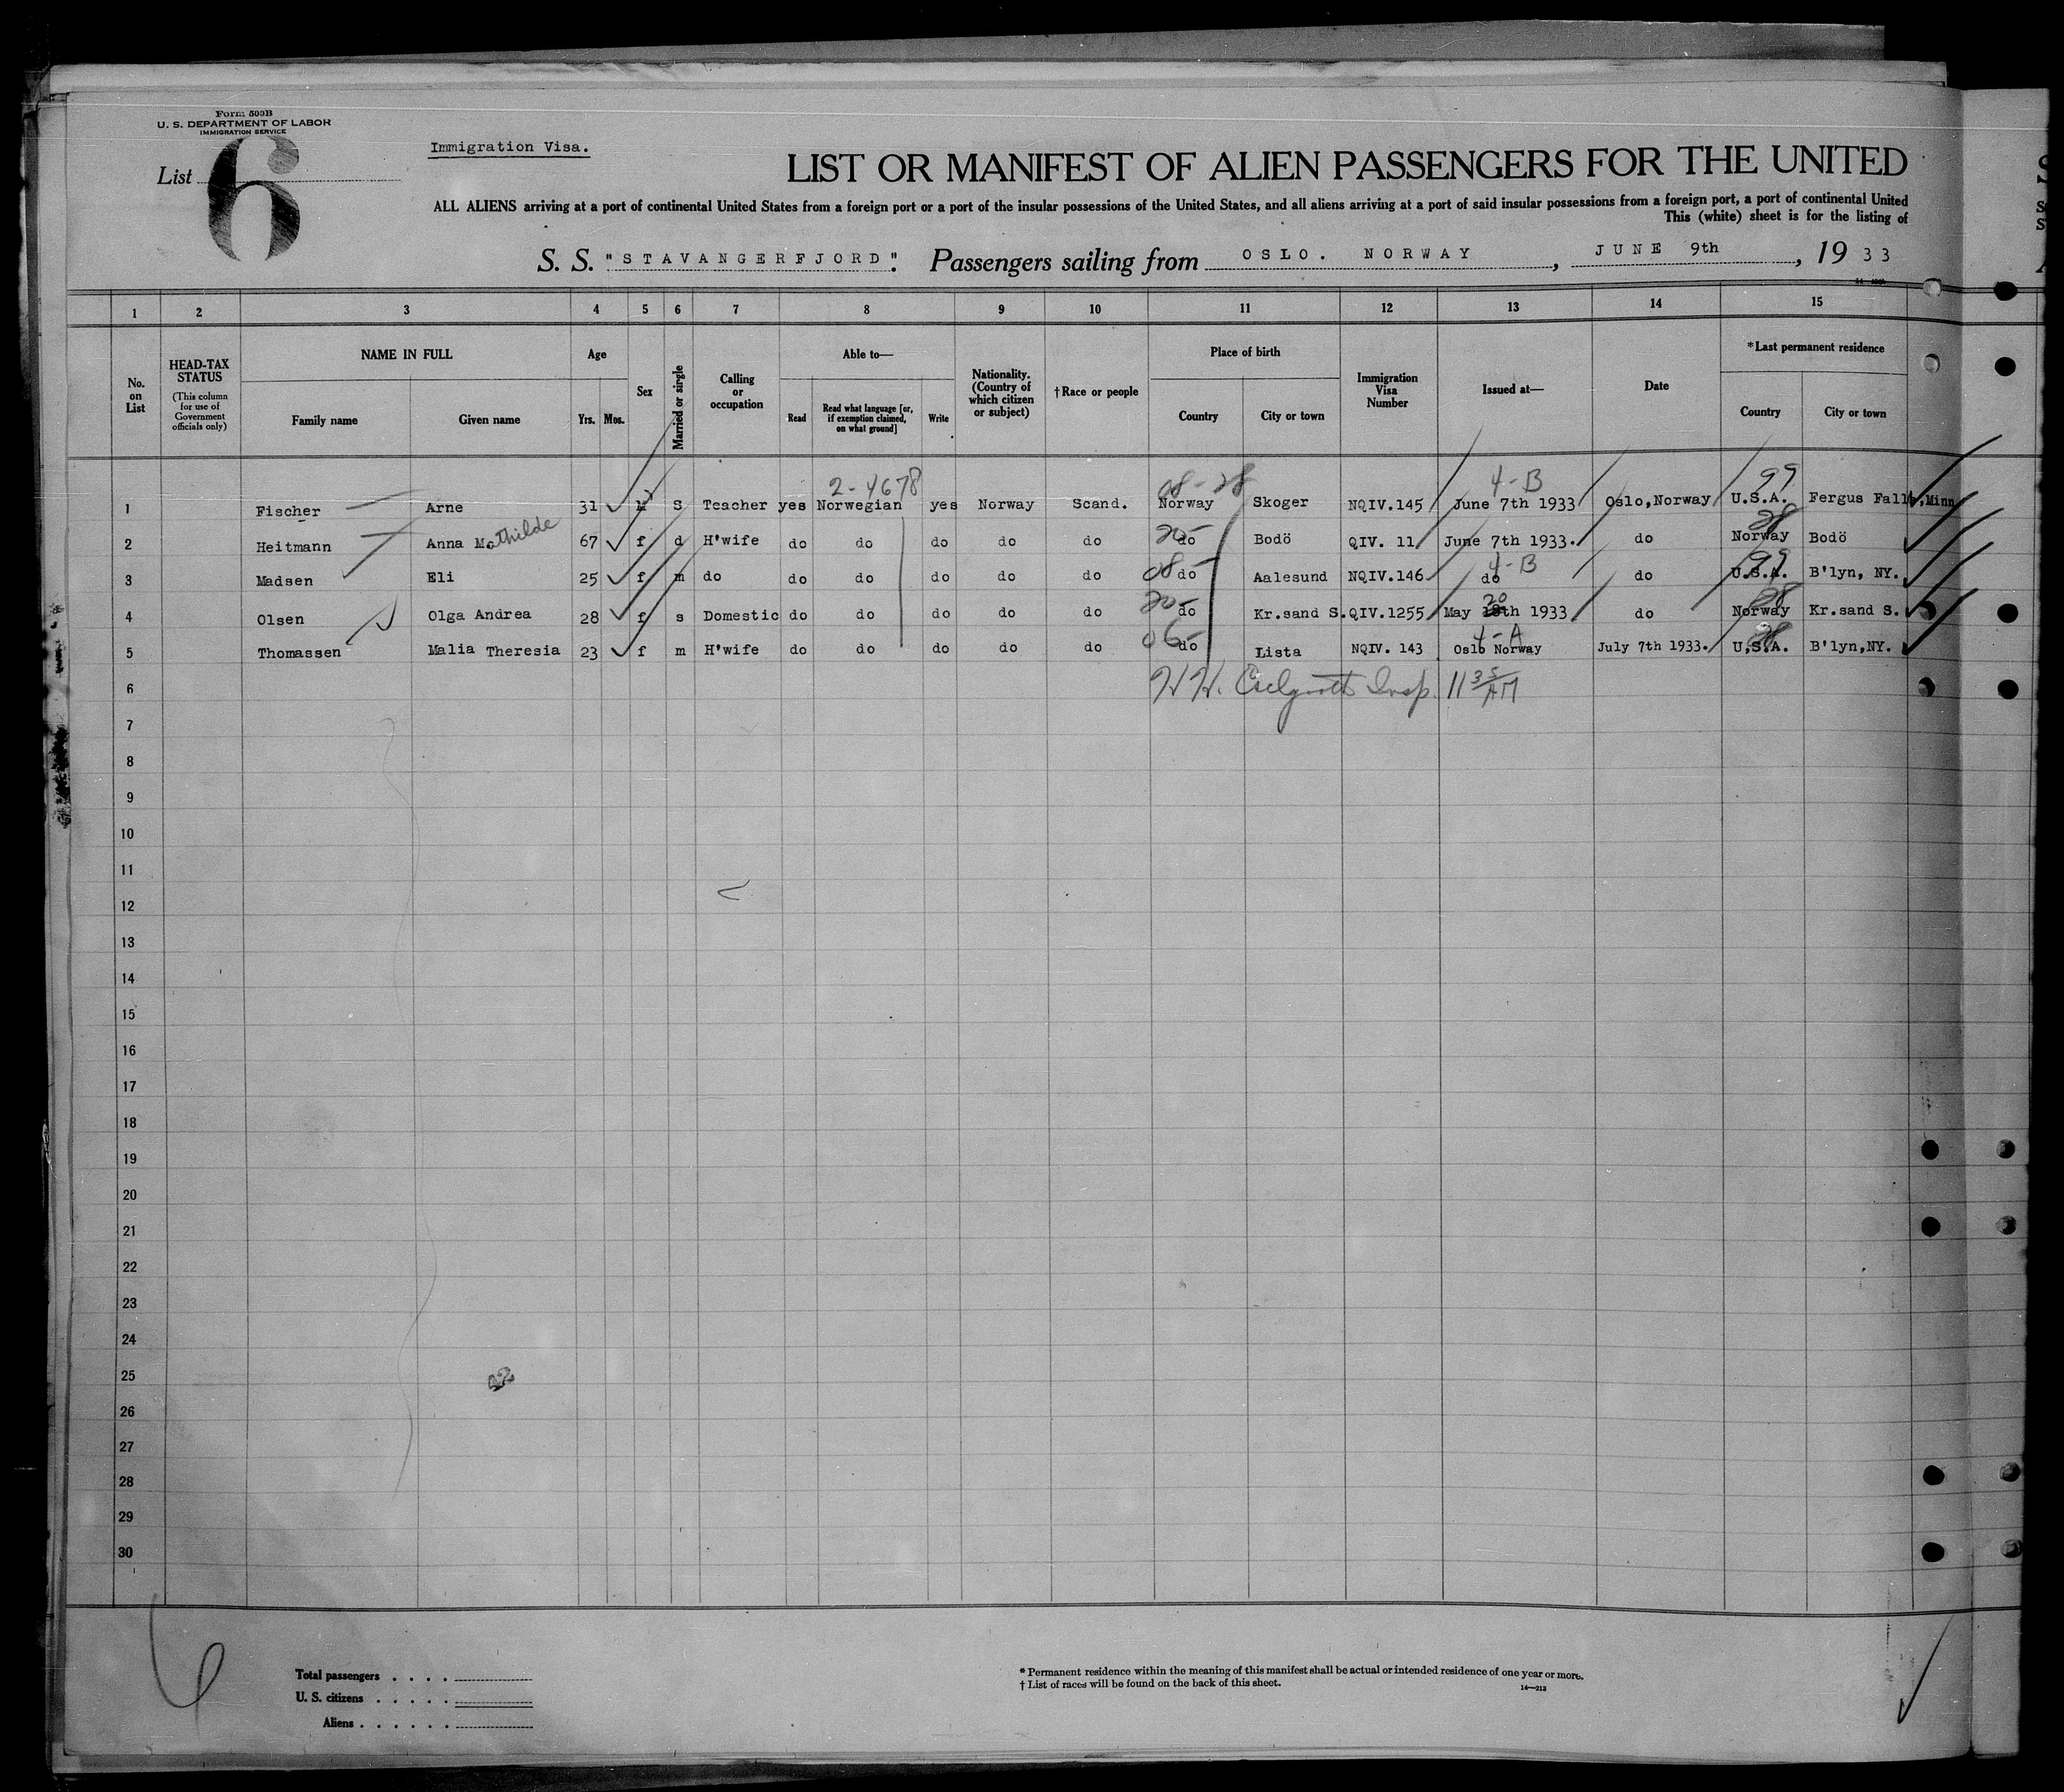 Form 500B
U. S. DEPARTMENT OF LABOR
IMMIGRATION SERVICE
List 6
Immigration Visa.
LIST OR MANIFEST OF ALIEN PASSENGERS FOR THE UNITED
ALL ALIENS arriving at a port of continental United States from a foreign port or a port of the insular possessions of the United States, and all aliens arriving at a port of said insular possessions from a foreign port, a port of continental United
This (white) sheet is for the listing of
S. S. "STAVANGERFJORD". Passengers sailing from OSLO. NORWAY, JUNE 9th, 1933
1 2 3 4 5 6 7 8 9 10 11 12 13 14 15
No. on List
HEAD-TAX STATUS
(This column for use of Government officials only)
NAME IN FULL
Family name Given name
Age
Yrs. Mos.
Sex
Married or single
Calling or occupation
Able to—
Read Read what language [or, if exemption claimed, on what ground] Write
Nationality. (Country of which citizen or subject)
†Race or people
Place of birth
Country City or town
Immigration Visa Number
Issued at—
Date
*Last permanent residence
Country City or town
2-4678 08-28 4-B 99
1 Fischer Arne 31 M S Teacher yes Norwegian yes Norway Scand. Norway Skoger NQIV.145 June 7th 1933 Oslo,Norway U.S.A. Fergus Falls,Minn
20- 28
2 Heitmann Anna Mathilde 67 f d H'wife do do do do do do Bodö QIV. 11 June 7th 1933. do Norway Bodö
08- 4-B 99
3 Madsen Eli 25 f m do do do do do do do Aalesund NQIV.146 do do U.S.A. B'lyn, NY.
20- 20 28
4 Olsen Olga Andrea 28 f s Domestic do do do do do do Kr.sand S. QIV.1255 May 18th 1933 do Norway Kr.sand S.
06- 4-A 28
5 Thomassen Malia Theresia 23 f m H'wife do do do do do do Lista NQIV. 143 Oslo Norway July 7th 1933. U.S.A. B'lyn,NY.
6 Insp. 11 35 AM
7
8
9
10
11
12
13
14
15
16
17
18
19
20
21
22
23
24
25
26
27
28
29
30
6
Total passengers
U. S. citizens
Aliens
* Permanent residence within the meaning of this manifest shall be actual or intended residence of one year or more.
† List of races will be found on the back of this sheet.
14—213